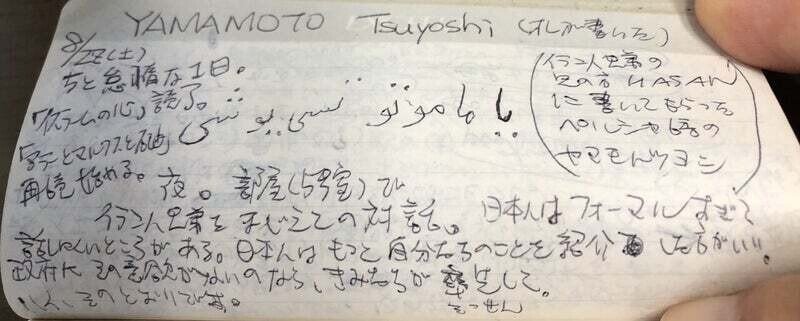 YAMAMOTO Tsuyoshi (オレが書いた)
8/22(土)
ちと怠惰な1日。
「イスラームの心」読了。
یاماموتو تسی یوشی
(イラン人兄弟の
兄の方 HASAN
に書いてもらった
ペルシャ語の
ヤマモトツヨシ)
再読始める。
夜。部屋(5号室)で
イラン人兄弟をまじえての対話。日本人はフォーマルすぎて
話しにくいところがある。日本人はもっと自分たちのことを紹介した方がいい。
政府にその意欲がないのなら、きみたちが率先して。
そっせん
いえ、そのとおりです。